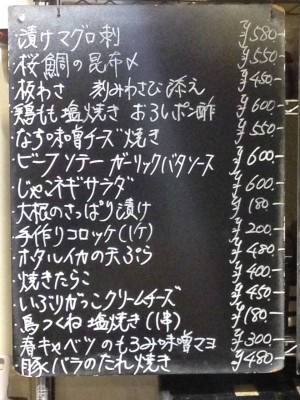 ・漬けマグロ刺 ¥580-
・桜鯛の昆布〆 ¥550-
・板わさ 刻みわさび添え ¥450-
・鶏もも塩焼き おろしポン酢 ¥600-
・なすの味噌チーズ焼き ¥550-
・ビーフソテーガーリックバタソース ¥600-
・じゃこネギサラダ ¥600-
・大根のさっぱり漬け ¥180-
・手作りコロッケ(1ケ) ¥200-
・ホタルイカの天ぷら ¥480-
・焼きたらこ ¥400-
・いぶりがっこクリームチーズ ¥450-
・鳥つくね塩焼き(1串) ¥180-
・春キャベツのもろみ味噌マヨ ¥300-
・豚バラのたれ焼き ¥480-